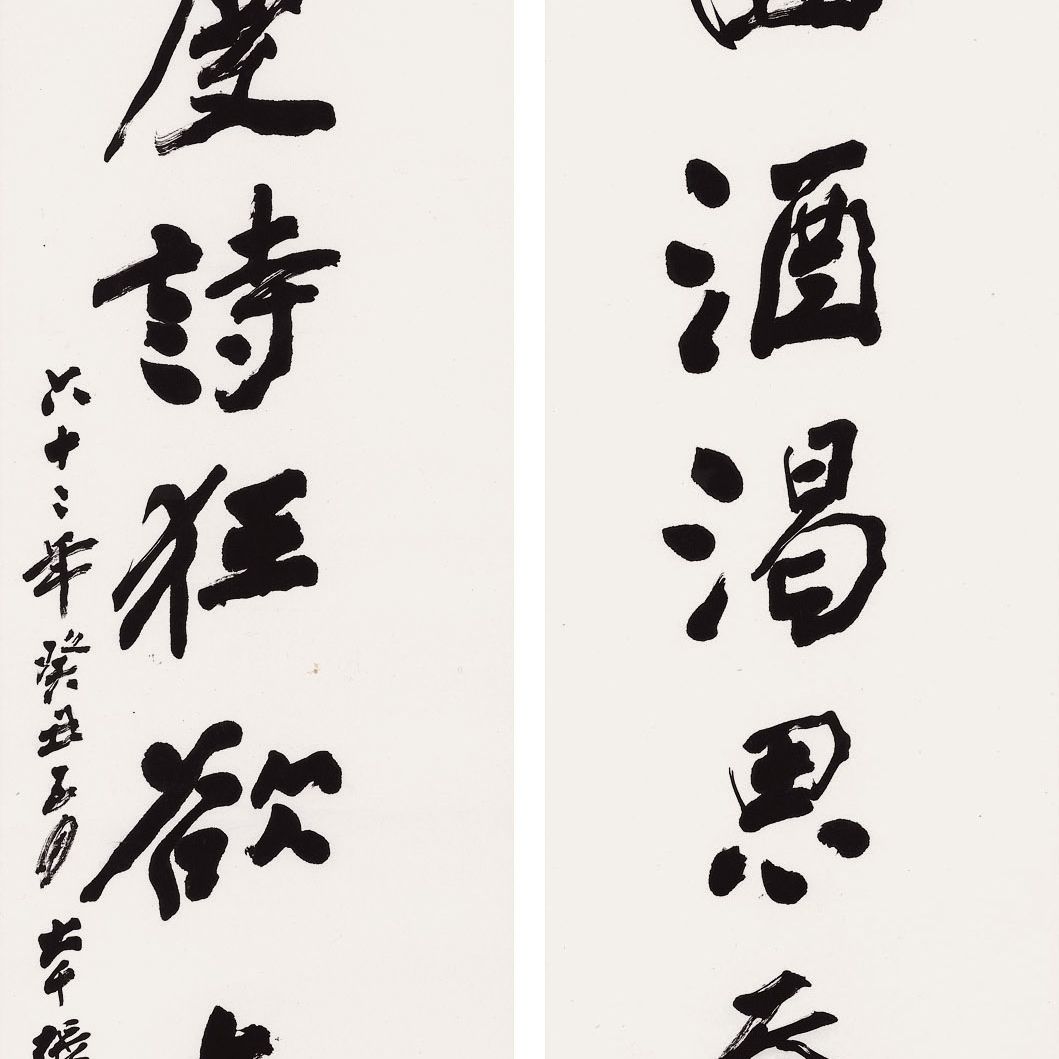 酒渴思
度詩狂欲
六十二年癸丑五月大千